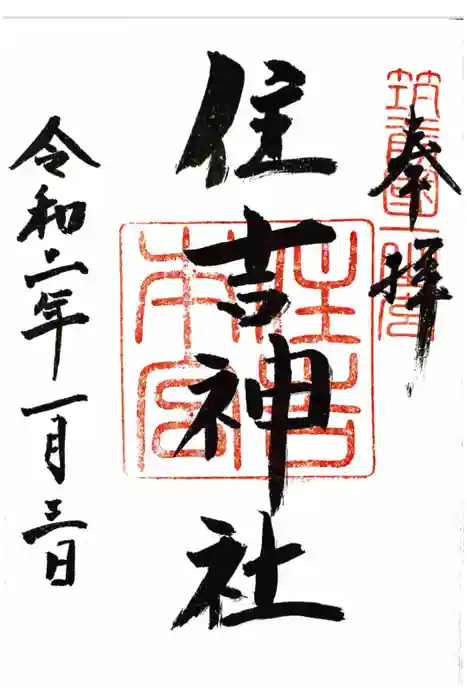 奉拝
筑前國一之宮
住吉神社
住吉本宮
令和二年一月三日